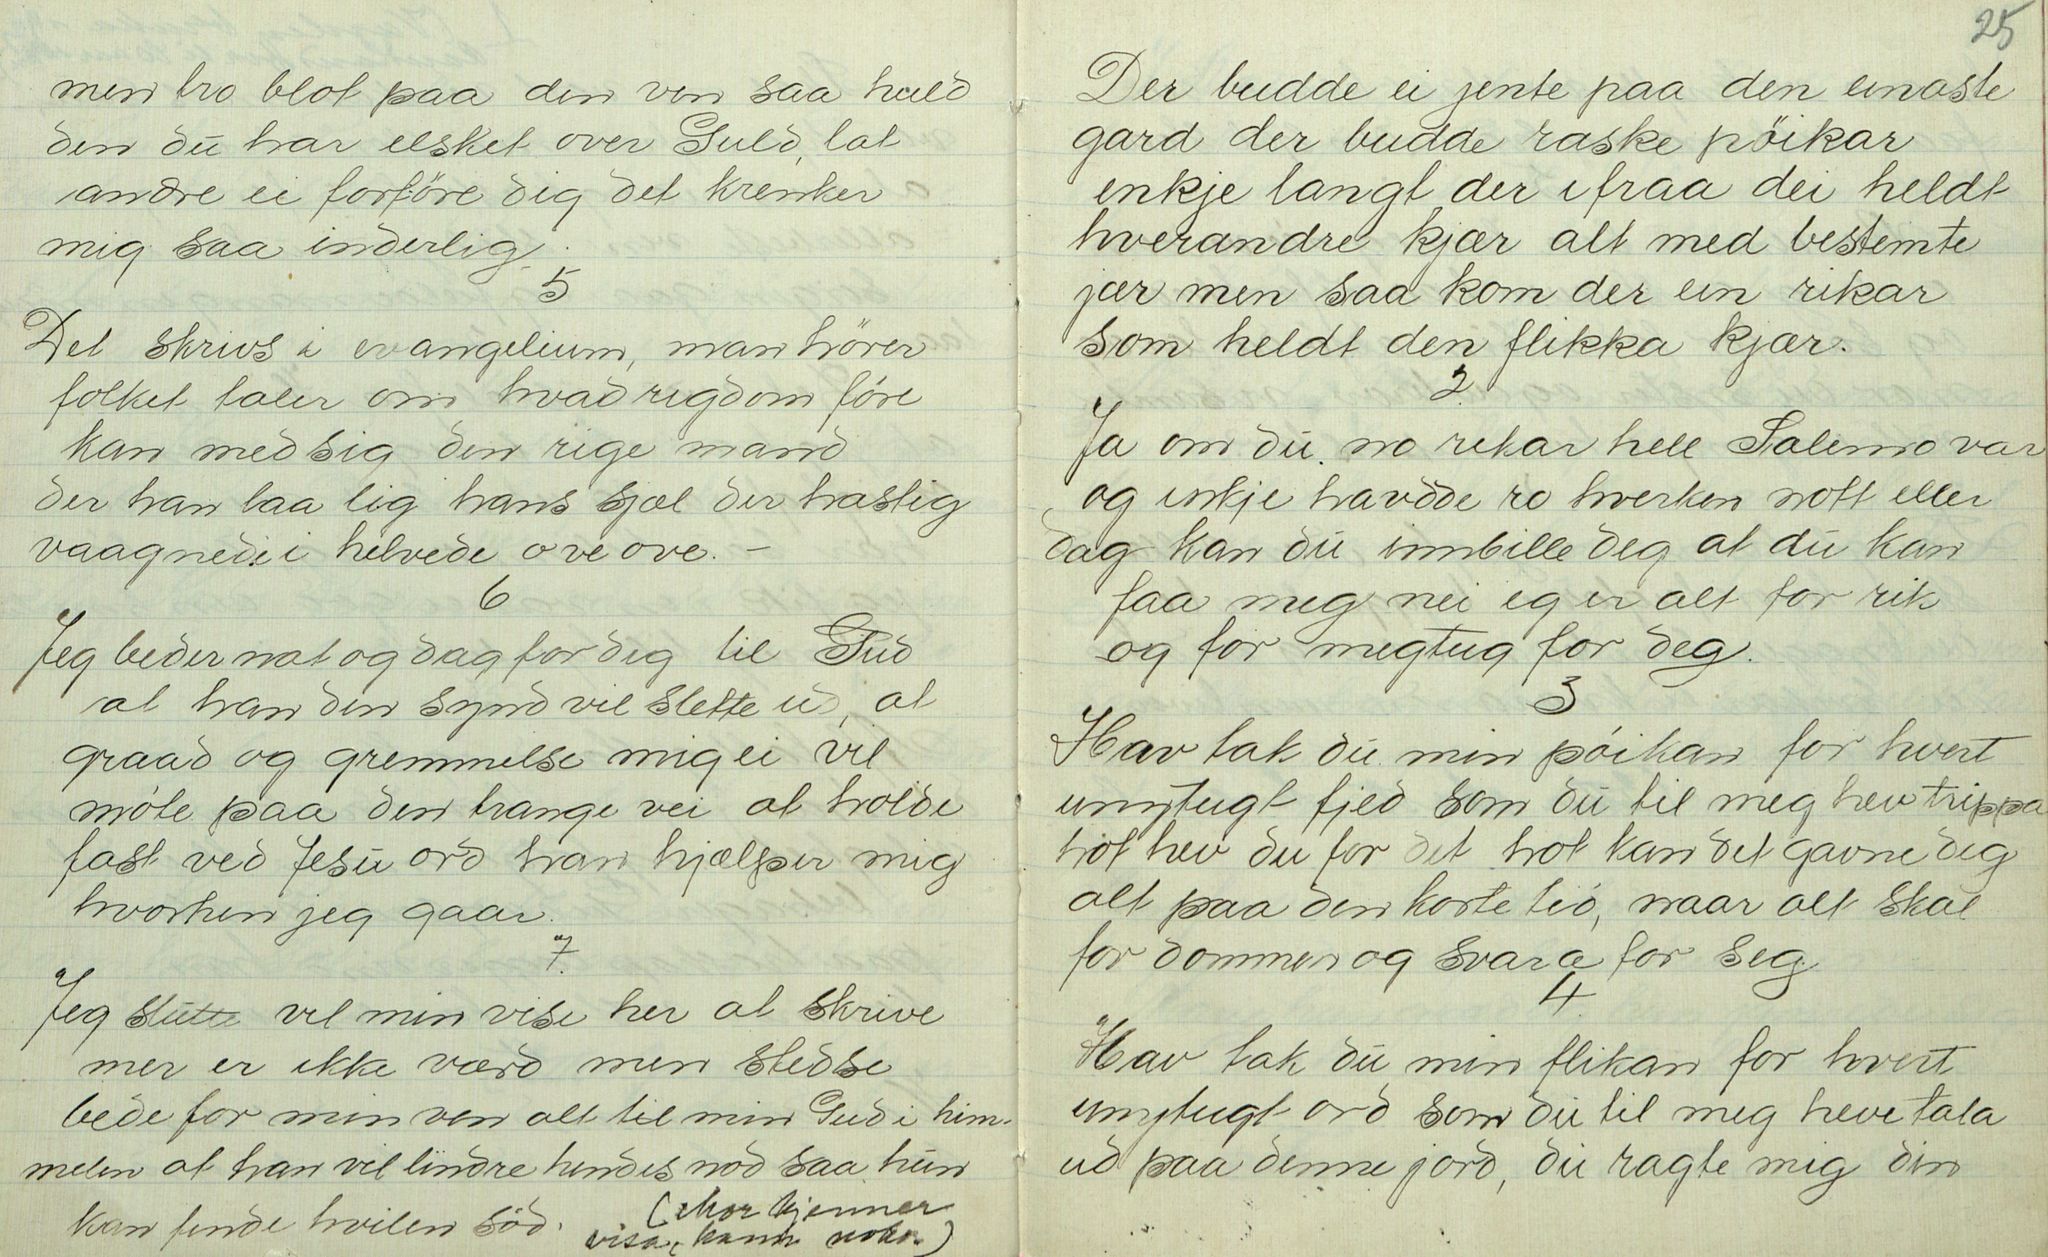 men tro blot paa den ven saa huld
den du har elsket over Guld, lat
andre ei forföre dig det krenker
mig saa inderlig.
5
Det skrivs i evangelium, man hörer
folket taler om hvad rigdom före
kan med sig den rige mand
der han laa lig hans sjæl der hastig
vaagnede i helvede ove ove. —
6
Jeg beder nat og dag for dig til Gud
at han den synd vil slette ud, at
graad og gremmelse mig ei vil
möte paa den trange vei at holde
fast ved Jesu ord han hjælper mig
hvorhen jeg gaar.
7.
Jeg slutte vil min vise her at skrive
mer er ikke værd men stedse
bede for min ven alt til min Gud i him-
melen at han vil lindre hendes nöd saa hun
kan finde hvilen söd.
(Mor kjenner
visa, kann noko.)
25
Der budde ei jente paa den einaste
gard der budde raske pöikar
enkje langt der ifraa dei heldt
hverandre kjær alt med bestemte
jær men saa kom der ein rikar
som heldt den flikka kjær.
2
Ja om du no rikar hell Salemo var
og inkje havdde ro hverken nott eller
dag kan du innbille deg at du kan
faa meg nei eg er alt for rik
og for megtug for deg.
3
Hav tak du min pöikan for hvert
unytugt fjed som du til meg hev trippa
hot hev du for det hot kan det gavne deg
alt paa den korte tid, naar alt skal
for dommen og svara for seg.
4.
Hav tak du min flikan for hvert
unytugt ord som du til meg heve tala
ud paa denne jord, du ragte mig din